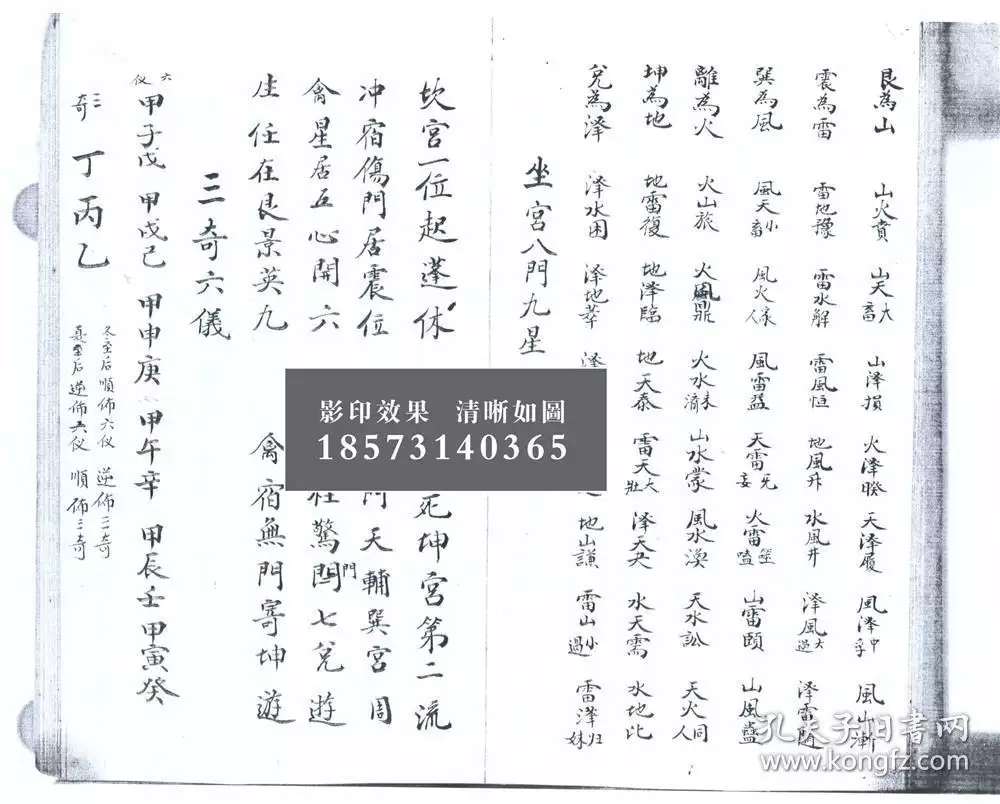 艮為山 山火賁 山天大畜 山泽損 火泽睽 天泽履 風泽中孚 風山漸
震為雷 雷地豫 雷水解 雷風恒 地風升 水風井 泽風大過 泽雷随
巽為風 風天小畜 風火家人 風雷益 天雷无妄 火雷噬嗑 山雷頤 山風蠱
離為火 火山旅 火風鼎 火水未濟 山水蒙 風水渙 天水訟 天火同人
坤為地 地雷復 地泽臨 地天泰 雷天大壯 泽天夬 水天需 水地比
兌為泽 泽水困 泽地萃 泽 地山謙 雷山小過 雷泽归妹
坐宮八門九星
坎宮一位起蓬休 死坤宮第二流
冲宿傷門居震位 門天輔巽宮周
禽星居五心開六 柱驚門七兌遊
生任在艮景英九 禽宿無門寄坤遊
三奇六儀
六仪 甲子戊 甲戌己 甲申庚 甲午辛 甲辰壬 甲寅癸
三奇 丁丙乙
冬至后順佈六仪 逆佈三奇
夏至后逆佈六仪 順佈三奇
影印效果 清晰如圖
18573140365
孔夫子旧书网
www.kongfz.com